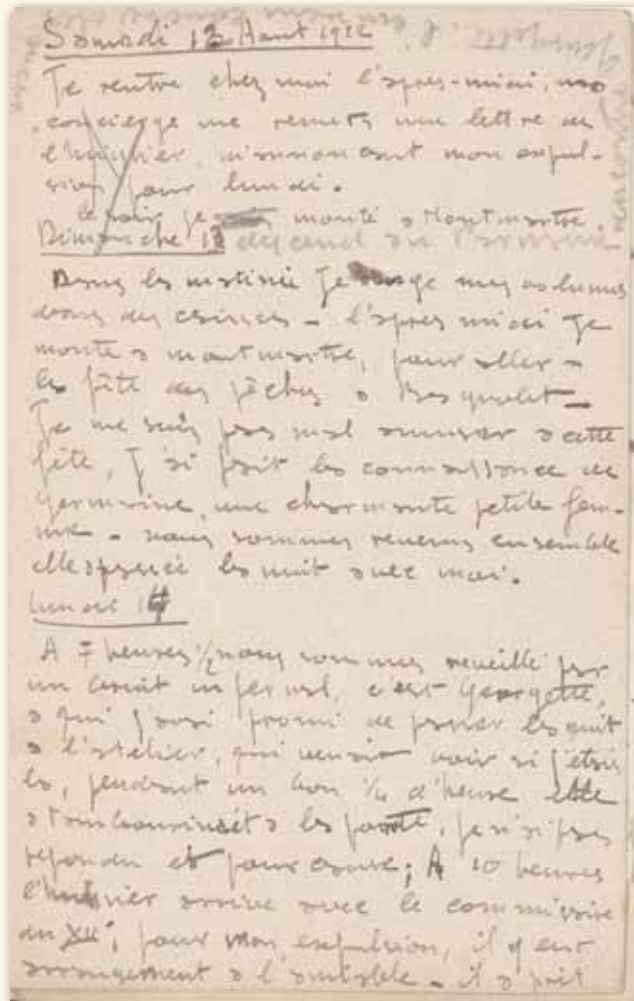 Samedi 12 Aout 1922
Je rentre chez moi l'apres-midi, ma
concierge me remets une lettre de
l'huissier, m'annoncant mon expul-
sion pour lundi.
Ce soir je monté a Montmartre.
Dimanche 13
Dans la matinée Je range mes volumes
dans des caisses - l'apres midi Je
monte a montmartre, pour aller a
la fête des pêches a
Je me suis pas mal amuser a cette
fête, J'ai fait la connaissance de
Germaine, une charmante petite fem-
me - nous sommes revenus ensemble
elle a passée la nuit avec moi.
lundi 14
A 7 heures 1/2 nous sommes reveillé par
un bruit infernal, c'est Georgette,
a qui j'avai promi de passer la nuit
a l'atelier, qui venait voir si j'étais
la, pendant un bon 1/4 d'heure elle
a tambourinét a la porte, je n'ai pas
repondu et pour cause; A 10 heures
l'huissier arrive avec le commissaire
du pour mon expulsion, il y eut
arrangement a l'amiable - il a prit
rencontre